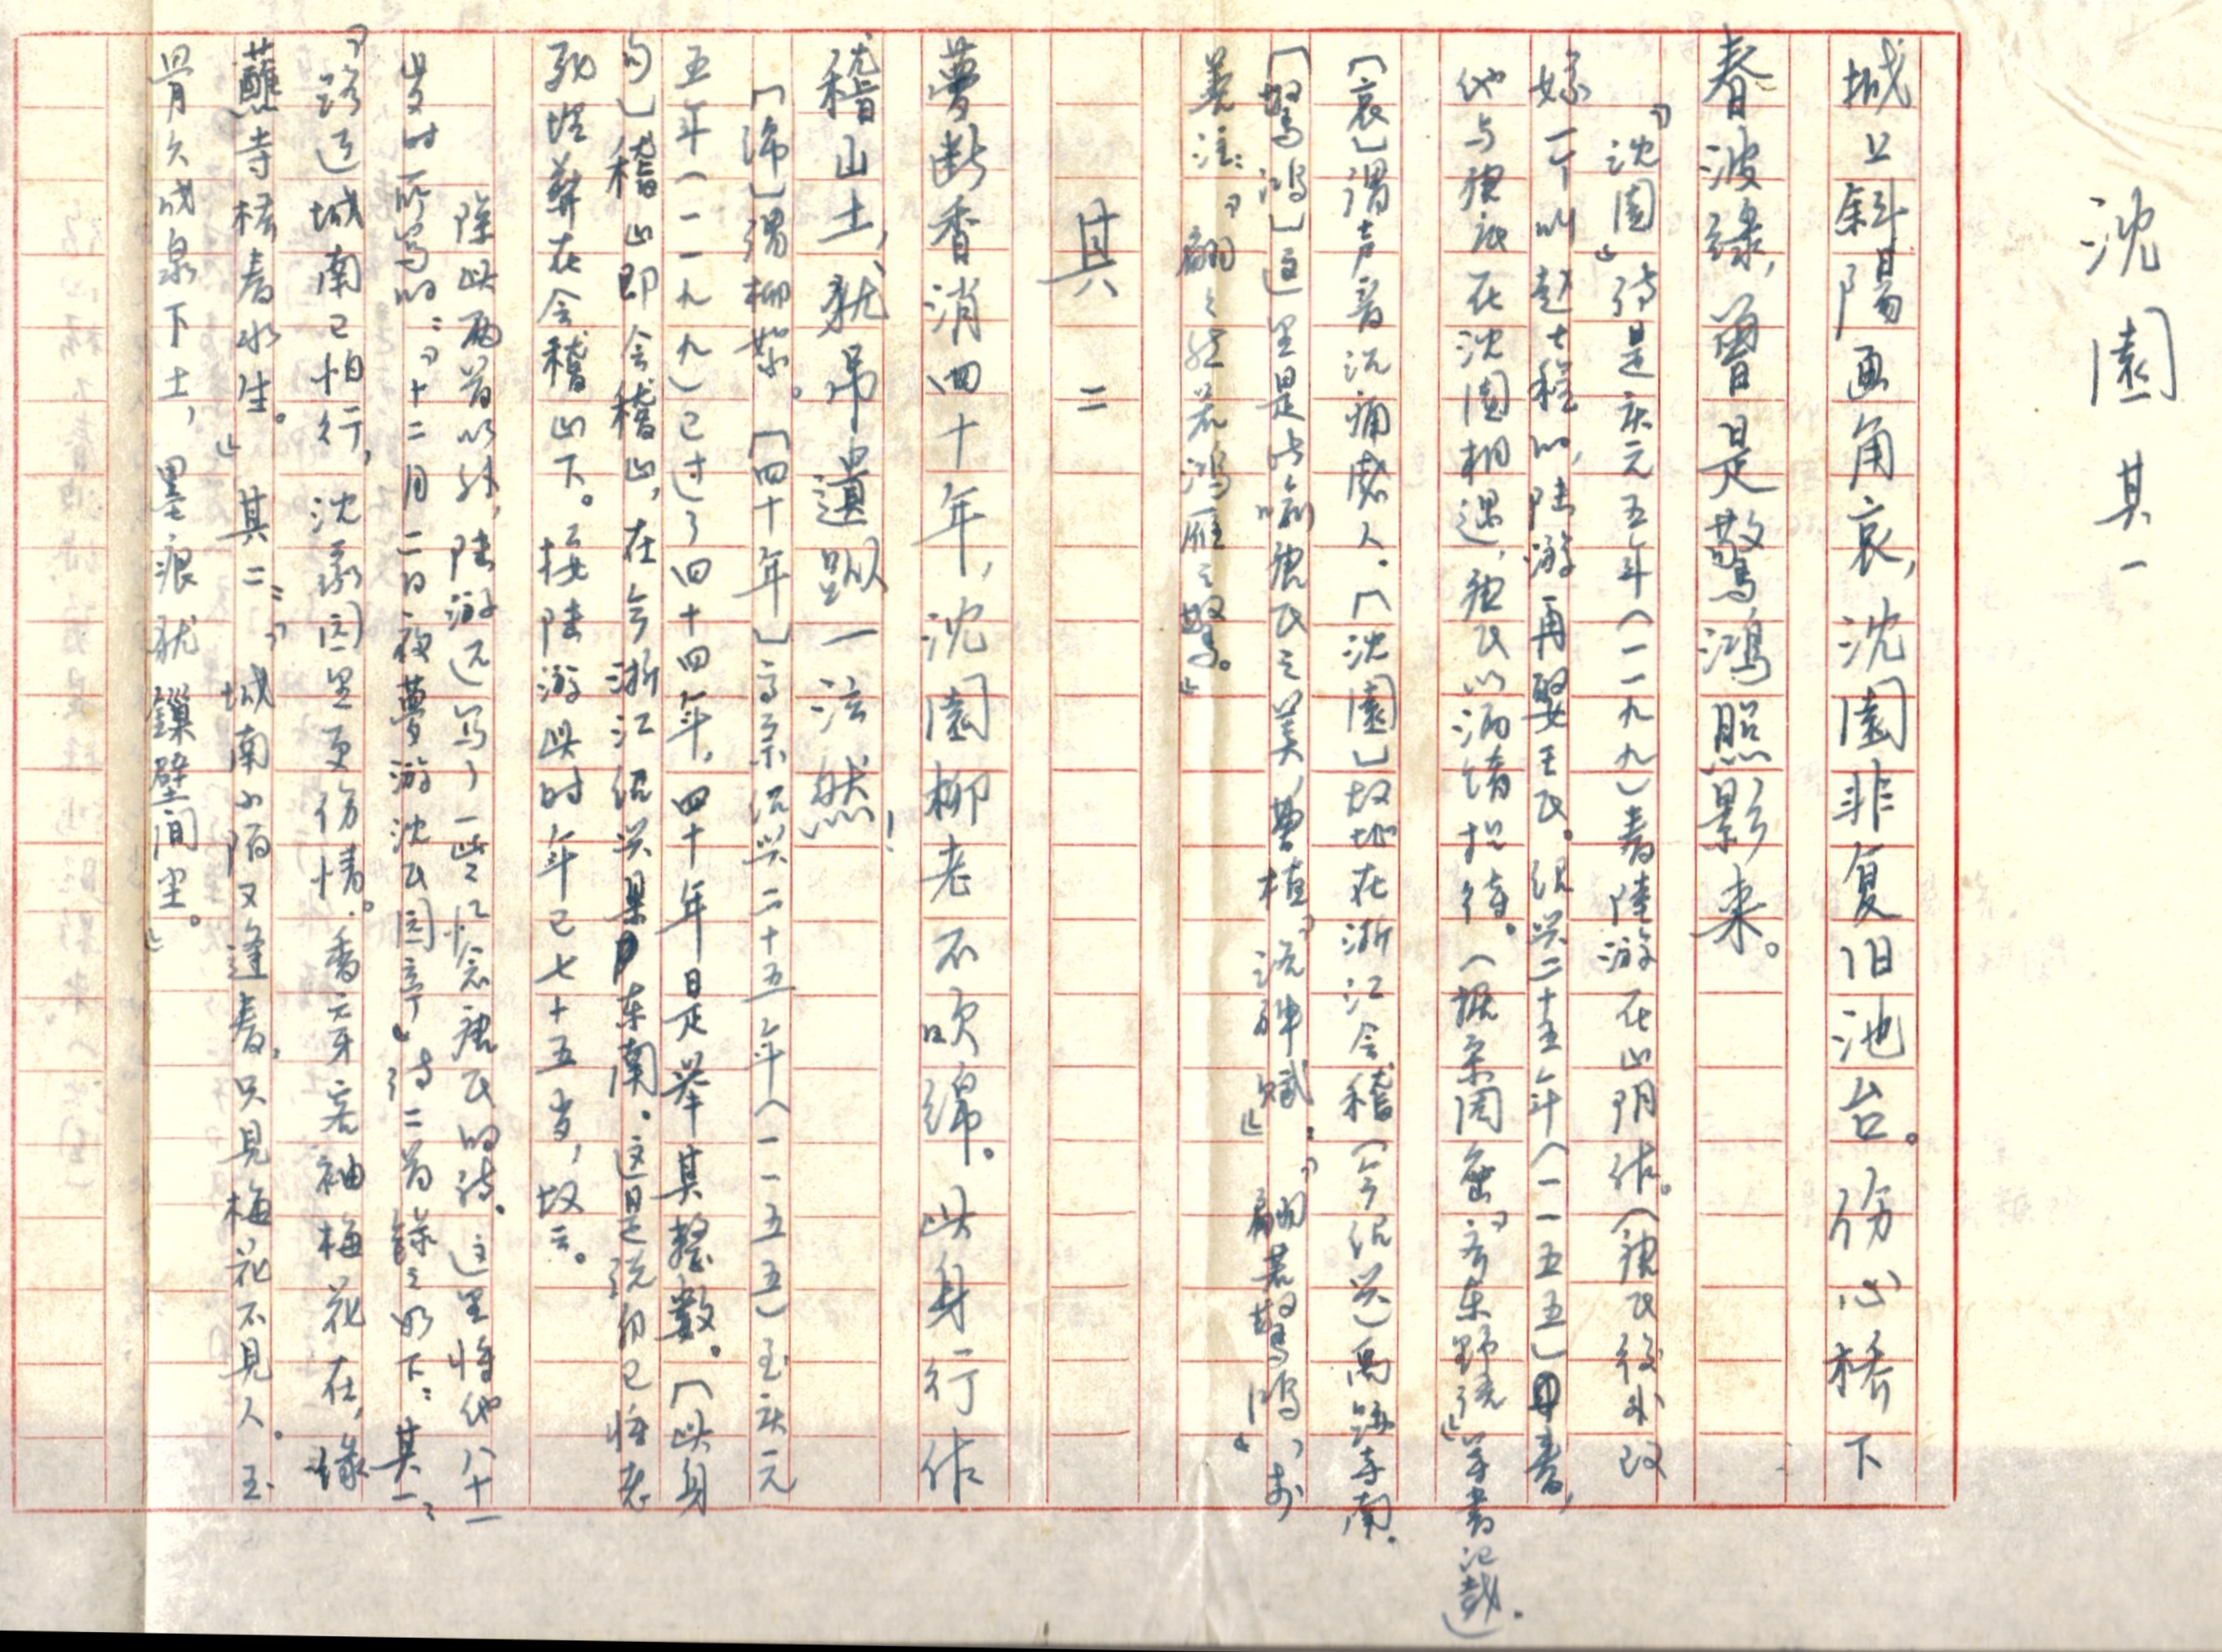 沈園 其一
城上斜陽画角哀，沈園非复旧池台。伤心桥下
春波绿，曾是驚鴻照影来。
『沈園』诗是庆元五年（一一九九）春陸游在山阴作。（唐氏後来改
嫁一个叫赵士程的，陸游再娶王氏。绍兴二十五年（一一五五）春，
他与唐氏在沈園相遇，唐氏以酒馔招待。（据宋周密『齐东野语』等書记载）.
［哀］谓声音沉痛感人.［沈園］故地在浙江会稽（今绍兴）禹跡寺南.
［驚鴻］这里是比喻唐氏之美，曹植『洛神赋』：『翩若驚鴻』，李
善注：『翩翩然若鸿雁之驚。』
其二
夢断香消四十年，沈園柳老不吹绵。此身行作
稽山土，犹吊遺蹤一泫然！
［绵］谓柳絮。［四十年］高宗绍兴二十五年（一一五五）至庆元
五年（一一九九）已过了四十四年，四十年是举其整数。［此身
句］稽山即会稽山，在今浙江绍兴县东南。这是说自己将老
死埋葬在会稽山下。按陸游此时年已七十五岁，故云。
除此两首以外，陸游还写了一些忆念唐氏的诗。这里将他八十一
岁时所写的：『十二月二日夜夢游沈氏园亭』诗二首錄之如下：其一：
『路近城南已怕行，沈家园里更伤情。香穿客袖梅花在，綠
蘸寺橋春水生。』其二：『城南小陌又逢春，只見梅花不見人。玉
骨久成泉下土，墨痕犹鎖壁间尘。』